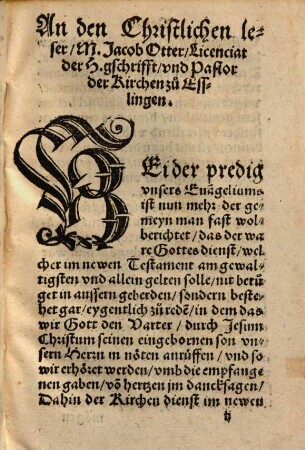 An den Christlichen le⸗
ser / M. Jacob Otter / Licenciat
der H. gschrifft / vnd Pastor
der Kirchen zů Ess⸗
lingen.
BEi der predig
vnsers Euãgeliums
ist nun mehr der ge⸗
meyn man fast wol
berichtet / das der wa
re Gottes dienst / wel⸗
cher im newen Testament am gewal⸗
tigsten vnd allein gelten solle / nit berů
get in aussern geberden / sondern beste⸗
het gar / eygentlich zů redẽ / in dem das
wir Gott den Vatter / durch Jesum
Christum seinen eingebornen son vn⸗
sern Herrn in nöten anrüffen / vnd so
wir erhöret werden / vmb die empfange
nen gaben / võ hertzen jm dancksagen /
Dahin der Kirchen dienst im newen
ij